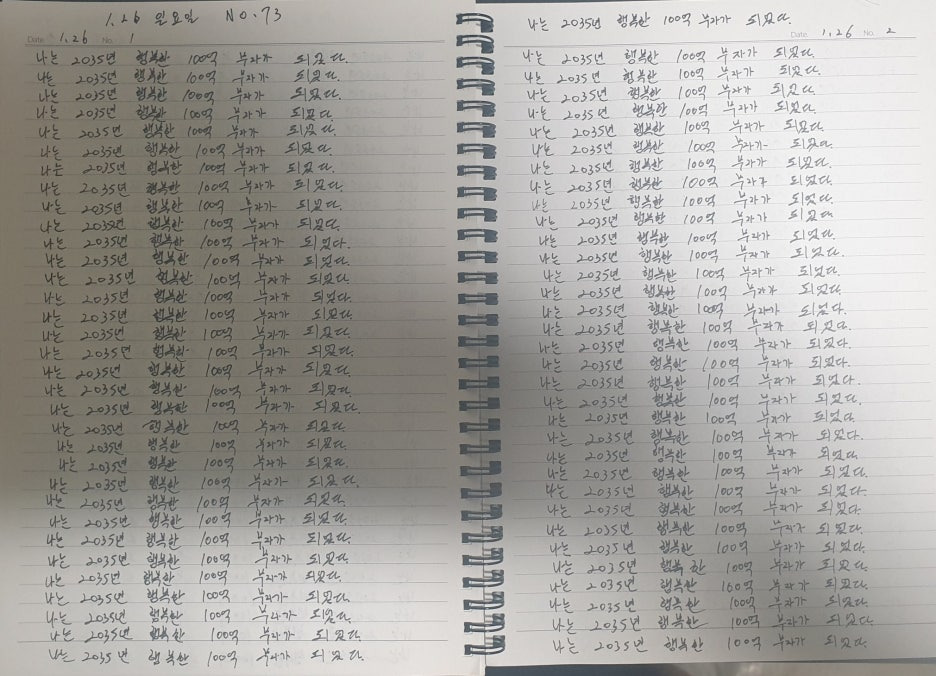 1.26 일요일 NO.73
Date 1.26 No. 1
나는 2035년 행복한 100억 부자가 되었다.
나는 2035년 행복한 100억 부자가 되었다.
나는 2035년 행복한 100억 부자가 되었다.
나는 2035년 행복한 100억 부자가 되었다.
나는 2035년 행복한 100억 부자가 되었다.
나는 2035년 행복한 100억 부자가 되었다.
나는 2035년 행복한 100억 부자가 되었다.
나는 2035년 행복한 100억 부자가 되었다.
나는 2035년 행복한 100억 부자가 되었다.
나는 2035년 행복한 100억 부자가 되었다.
나는 2035년 행복한 100억 부자가 되었다.
나는 2035년 행복한 100억 부자가 되었다.
나는 2035년 행복한 100억 부자가 되었다.
나는 2035년 행복한 100억 부자가 되었다.
나는 2035년 행복한 100억 부자가 되었다.
나는 2035년 행복한 100억 부자가 되었다.
나는 2035년 행복한 100억 부자가 되었다.
나는 2035년 행복한 100억 부자가 되었다.
나는 2035년 행복한 100억 부자가 되었다.
나는 2035년 행복한 100억 부자가 되었다.
나는 2035년 행복한 100억 부자가 되었다.
나는 2035년 행복한 100억 부자가 되었다.
나는 2035년 행복한 100억 부자가 되었다.
나는 2035년 행복한 100억 부자가 되었다.
나는 2035년 행복한 100억 부자가 되었다.
나는 2035년 행복한 100억 부자가 되었다.
나는 2035년 행복한 100억 부자가 되었다.
나는 2035년 행복한 100억 부자가 되었다.
나는 2035년 행복한 100억 부자가 되었다.
나는 2035년 행복한 100억 부자가 되었다.
나는 2035년 행복한 100억 부자가 되었다.
나는 2035년 행복한 100억 부자가 되었다.
나는 2035년 행복한 100억 부자가 되었다.
나는 2035년 행복한 100억 부자가 되었다.
Date 1.26 No. 2
나는 2035년 행복한 100억 부자가 되었다.
나는 2035년 행복한 100억 부자가 되었다.
나는 2035년 행복한 100억 부자가 되었다.
나는 2035년 행복한 100억 부자가 되었다.
나는 2035년 행복한 100억 부자가 되었다.
나는 2035년 행복한 100억 부자가 되었다.
나는 2035년 행복한 100억 부자가 되었다.
나는 2035년 행복한 100억 부자가 되었다.
나는 2035년 행복한 100억 부자가 되었다.
나는 2035년 행복한 100억 부자가 되었다.
나는 2035년 행복한 100억 부자가 되었다.
나는 2035년 행복한 100억 부자가 되었다.
나는 2035년 행복한 100억 부자가 되었다.
나는 2035년 행복한 100억 부자가 되었다.
나는 2035년 행복한 100억 부자가 되었다.
나는 2035년 행복한 100억 부자가 되었다.
나는 2035년 행복한 100억 부자가 되었다.
나는 2035년 행복한 100억 부자가 되었다.
나는 2035년 행복한 100억 부자가 되었다.
나는 2035년 행복한 100억 부자가 되었다.
나는 2035년 행복한 100억 부자가 되었다.
나는 2035년 행복한 100억 부자가 되었다.
나는 2035년 행복한 100억 부자가 되었다.
나는 2035년 행복한 100억 부자가 되었다.
나는 2035년 행복한 100억 부자가 되었다.
나는 2035년 행복한 100억 부자가 되었다.
나는 2035년 행복한 100억 부자가 되었다.
나는 2035년 행복한 100억 부자가 되었다.
나는 2035년 행복한 100억 부자가 되었다.
나는 2035년 행복한 100억 부자가 되었다.
나는 2035년 행복한 100억 부자가 되었다.
나는 2035년 행복한 100억 부자가 되었다.
나는 2035년 행복한 100억 부자가 되었다.